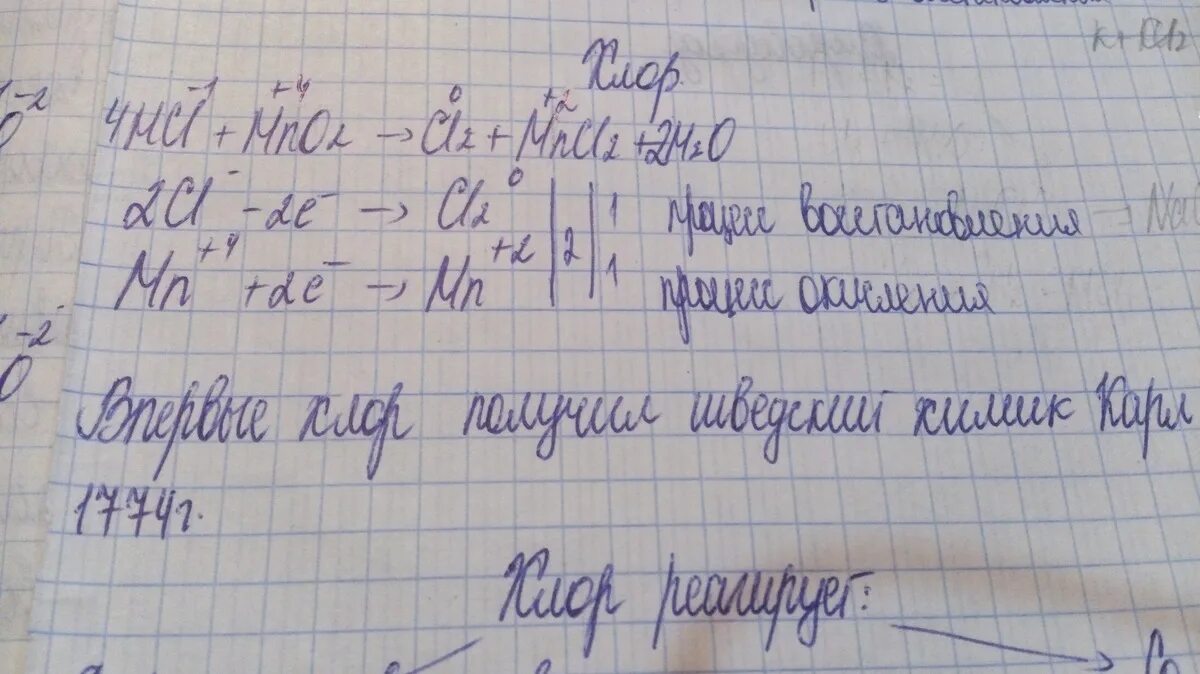 Хлор
4HCl⁻¹ + Mn⁺⁴O2 → Cl2⁰ + Mn⁺²Cl2 + 2H2O
2Cl⁻ - 2e⁻ → Cl2⁰ | 2 | 1 процесс восстановления
Mn⁺⁴ + 2e⁻ → Mn⁺² | 1 процесс окисления
Впервые хлор получил шведский химик Карл
1774г.
Хлор реагирует: